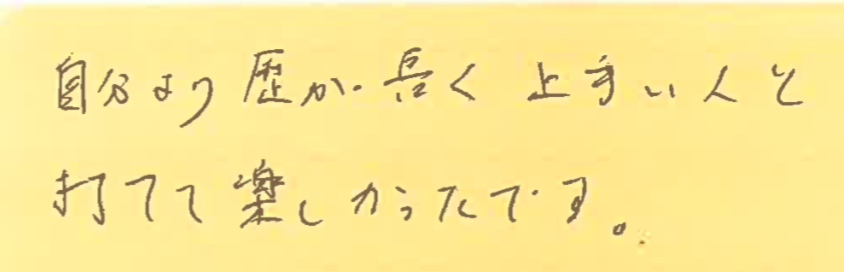 自分より歴が長く上手い人と
打てて楽しかったです。